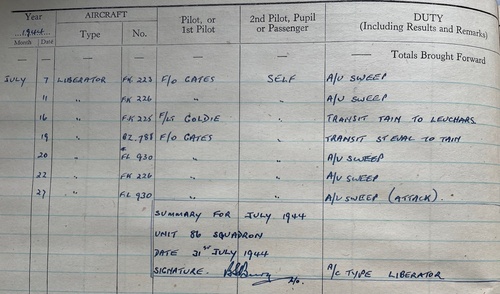 Year AIRCRAFT Pilot, or 1st Pilot 2nd Pilot, Pupil or Passenger DUTY (Including Results and Remarks)
1944
Month Date Type No.
— — — — — — Totals Brought Forward
JULY 7 LIBERATOR FK 223 F/O GATES SELF A/U SWEEP
11 " FK 226 " " A/U SWEEP
16 " FK 225 F/LT GOLDIE " TRANSIT TAIN TO LEUCHARS
19 " BZ 788 F/O GATES " TRANSIT ST EVAL TO TAIN
20 " FL 930 " " A/U SWEEP
22 " FK 226 " " A/U SWEEP
27 " FL 930 " " A/U SWEEP (ATTACK).
SUMMARY FOR JULY 1944
UNIT 86 SQUADRON
DATE 31ST JULY 1944
SIGNATURE. A/C TYPE LIBERATOR